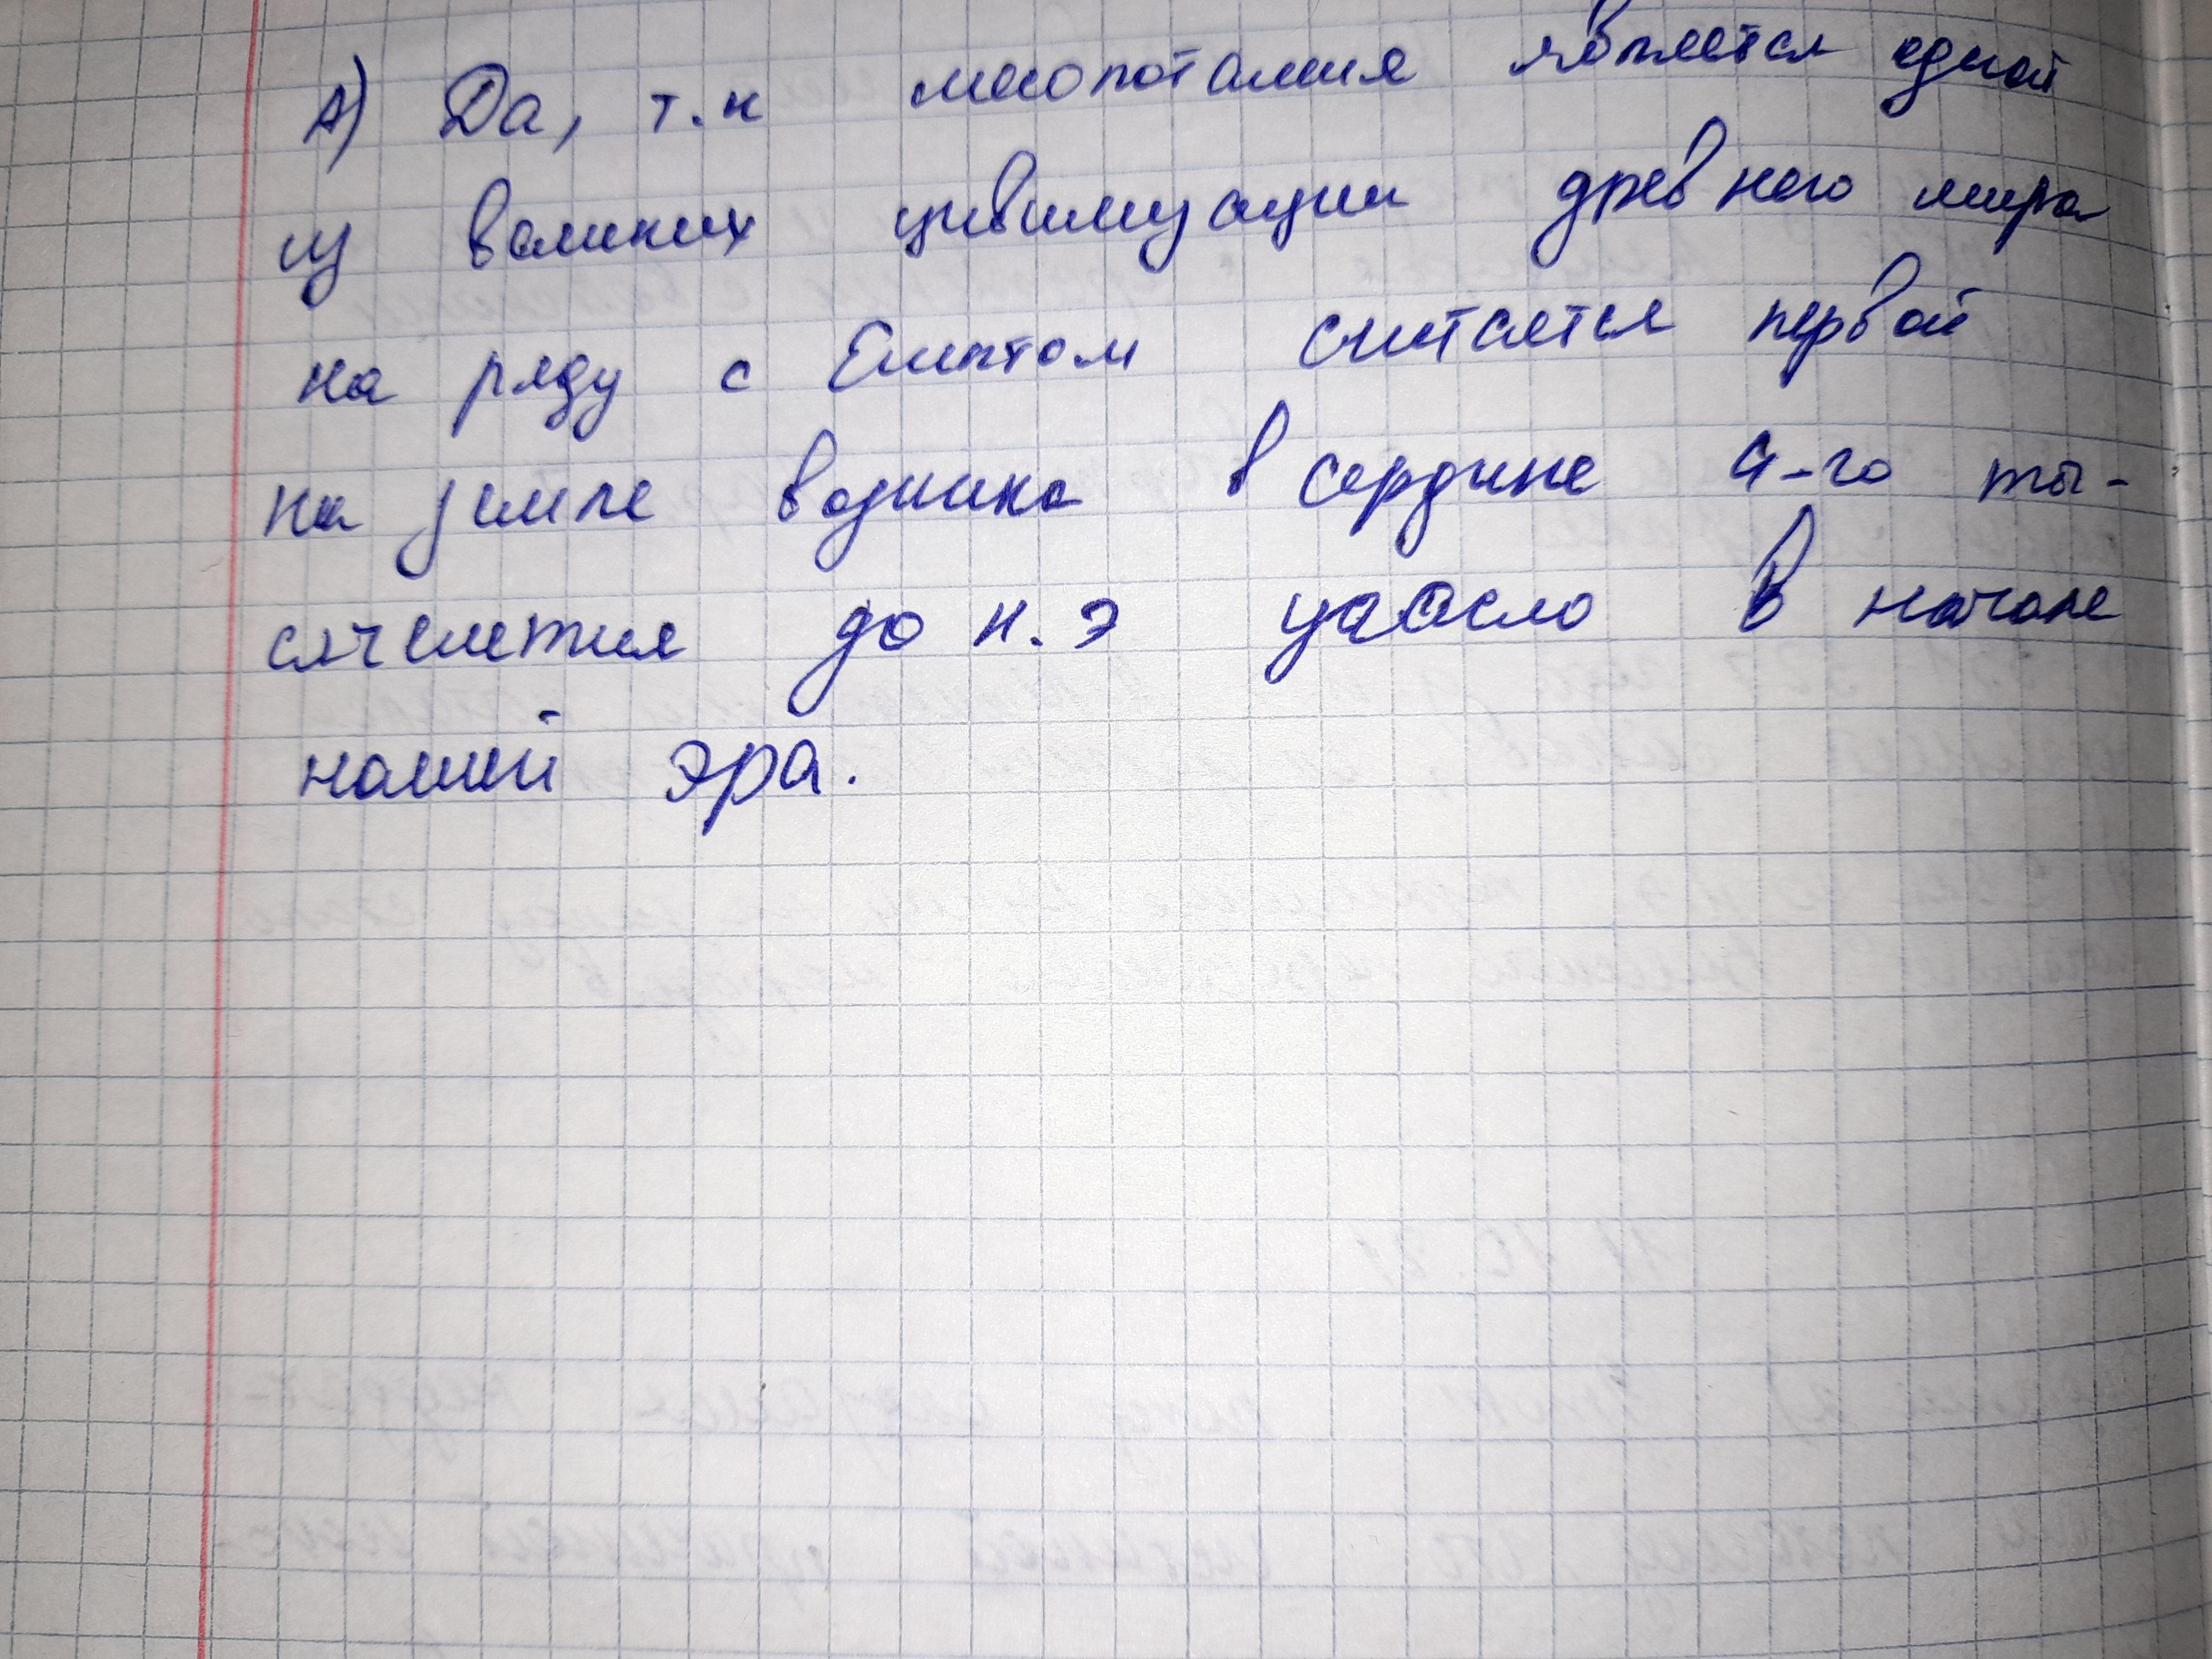 А) Да, т.к месопотамия является одной
из великих цивилизации древнего мира
на ряду с Египтом считается первой
на земле возникла в сердине 4-го ты-
сячелетия до н.э угасло в начале
нашей эра.